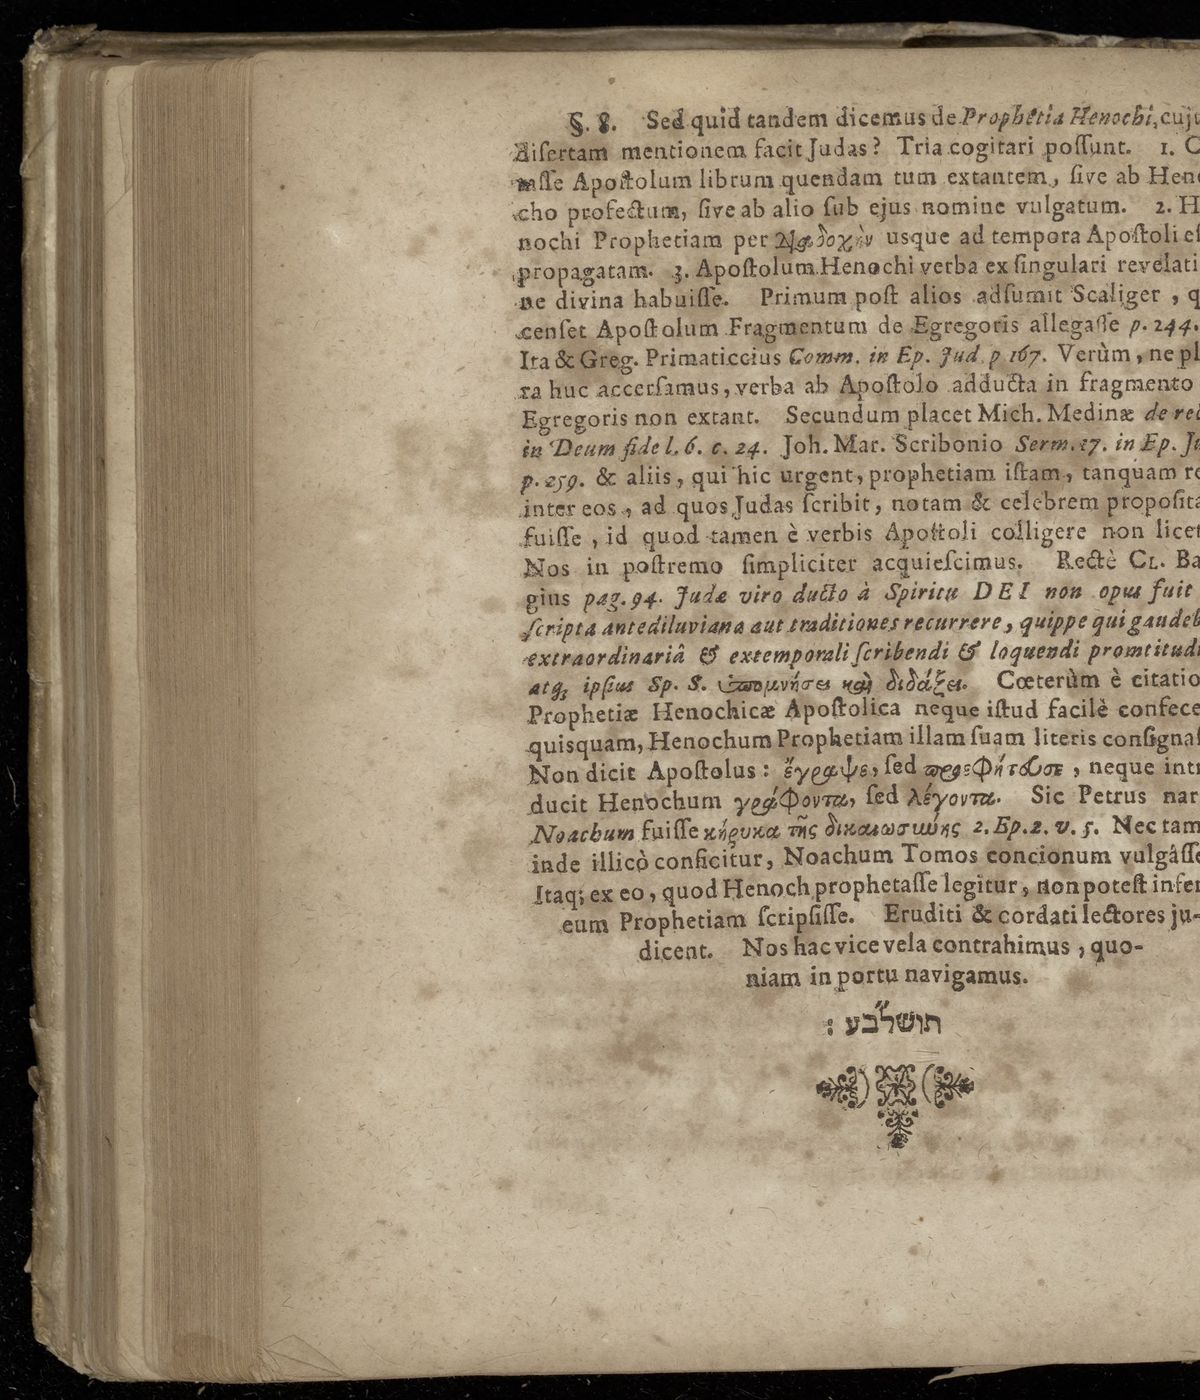 §. 8. Sed quid tandem dicemus de Prophetia Henochi, cuju
disertam mentionem facit Judas? Tria cogitari possunt. 1. C
tasse Apostolum librum quendam tum extantem, sive ab Heno
cho profectum, sive ab alio sub ejus nomine vulgatum. 2. H
nochi Prophetiam per παραδοχὴν usque ad tempora Apostoli es
propagatam. 3. Apostolum Henochi verba ex singulari revelati
ne divina habuisse. Primum post alios adsumit Scaliger, q
censet Apostolum Fragmentum de Egregoris allegasse p. 244.
Ita & Greg. Primaticcius Comm. in Ep. Jud. p 167. Verùm, ne pl
ra huc accersamus, verba ab Apostolo adducta in fragmento
Egregoris non extant. Secundum placet Mich. Medinæ de rec
in Deum fide l. 6. c. 24. Joh. Mar. Scribonio Serm. 17. in Ep. Ju
p. 259. & aliis, qui hic urgent, prophetiam istam, tanquam re
inter eos, ad quos Judas scribit, notam & celebrem proposita
fuisse, id quod tamen è verbis Apostoli colligere non licet
Nos in postremo simpliciter acquiescimus. Rectè Cl. Ba
gius pag. 94. Judæ viro ducto à Spiritu DEI non opus fuit
scripta antediluviana aut traditiones recurrere, quippe qui gaudeb
extraordinariâ & extemporali scribendi & loquendi promtitudi
atq; ipsius Sp. S. ὑπομνήσει καὶ διδάξει. Cœterùm è citatio
Prophetiæ Henochicæ Apostolica neque istud facilè confece
quisquam, Henochum Prophetiam illam suam literis consignas
Non dicit Apostolus: ἔγραψε, sed προεφήτευσε, neque intr
ducit Henochum γράφοντα, sed λέγοντα. Sic Petrus nar
Noachum fuisse κήρυκα τῆς δικαιοσύνης 2. Ep. 2. v. 5. Nec tam
inde illicò conficitur, Noachum Tomos concionum vulgâsse
Itaq; ex eo, quod Henoch prophetasse legitur, non potest infer
eum Prophetiam scripsisse. Eruditi & cordati lectores ju-
dicent. Nos hac vice vela contrahimus, quo-
niam in portu navigamus.
תושל״בע :